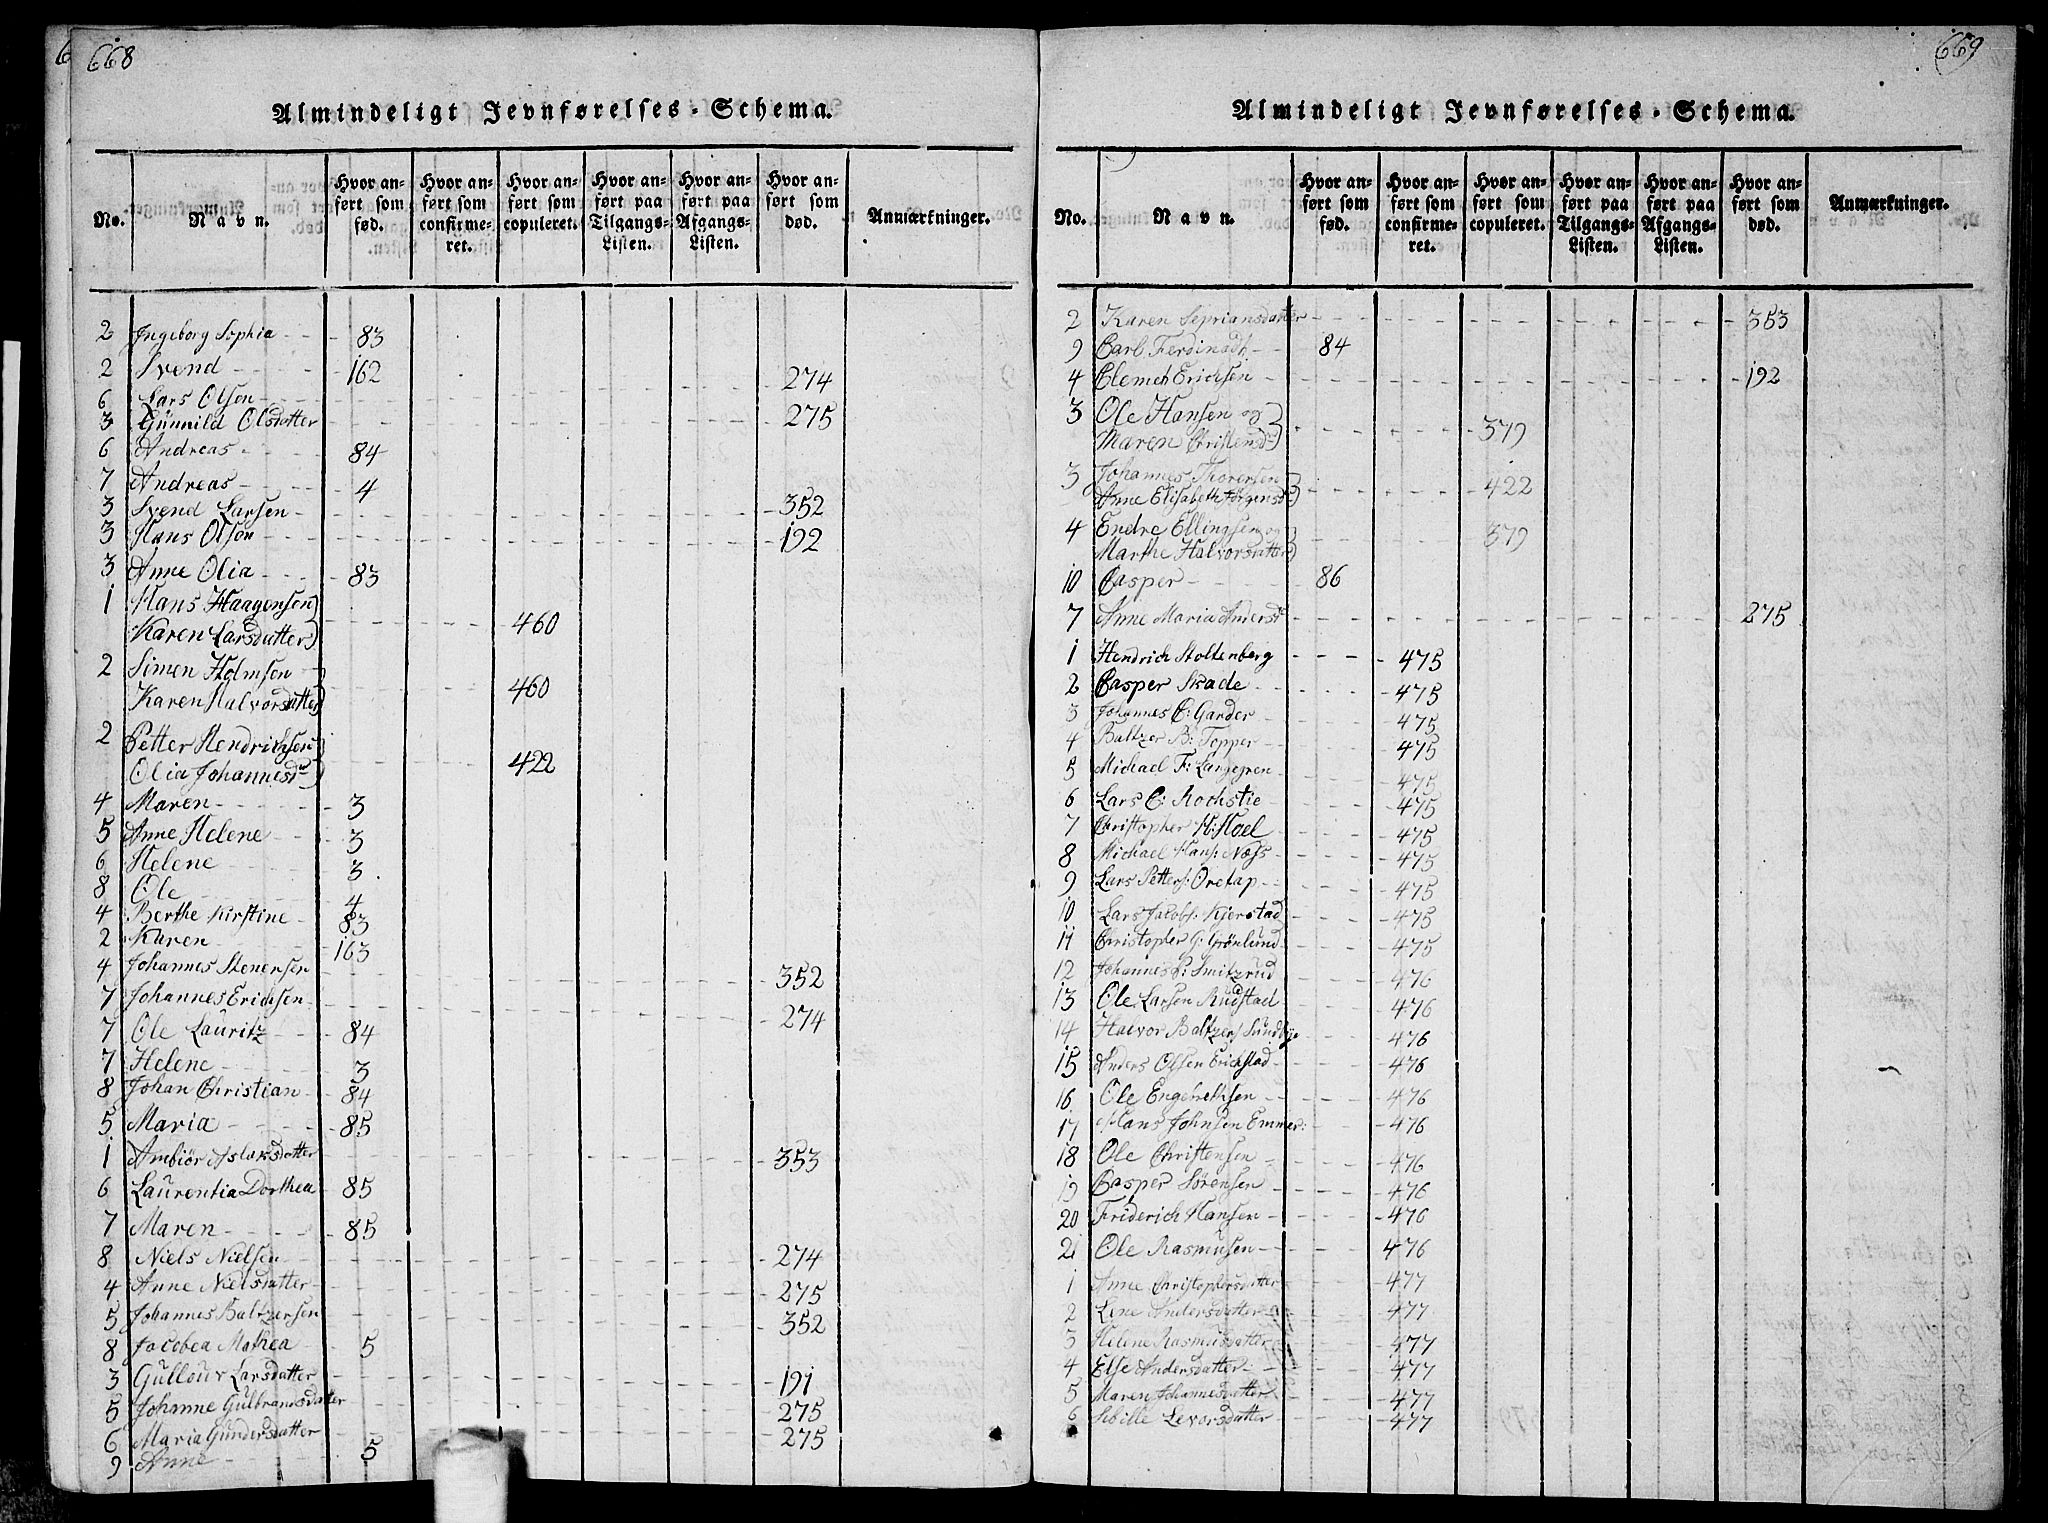 668
Almindeligt Jevnførelses-Schema.
No. Navn. Hvor anført som fød. Hvor anført som confirmeret. Hvor anført som copuleret. Hvor anført paa Tilgangs-Listen. Hvor anført paa Afgangs-Listen. Hvor anført som død. Anmærkninger.
2 Ingeborg Sophia 83
2 Svend 162
6 Lars Olsen 274
3 Günnild Olsdatter 275
6 Andreas 84
7 Andreas 4
3 Svend Larsen 352
3 Hans Olsøn 192
3 Anne Olia 83
1 Hans Haagensen
Karen Larsdatter 460
2 Simen Holmsen
Karen Halvorsdatter 460
2 Petter Hendrichsen
Olia Johannesdr 422
4 Maren 3
5 Anne Helene 3
6 Helene 3
8 Ole 4
4 Berthe Kirstine 83
2 Karen 163
4 Johannes Stenersen 352
7 Johannes Erichsen 274
7 Ole Lauritz 84
7 Helene 3
8 Johan Christian 84
5 Maria 85
1 Anbiör Aslaksdatter 353
6 Laurentia Dorthea 85
7 Maren 85
8 Niels Nielsen 274
4 Anne Nielsdatter 275
5 Johannes Baltzersen 352
8 Jacobea Mathea 5
3 Gullour Larsdatter 191
5 Johanne Gulbrandsdatter 275
6 Maria Gundersdatter 275
9 Anne 5
669
Almindeligt Jevnførelses-Schema.
No. Navn. Hvor anført som fød. Hvor anført som confirmeret. Hvor anført som copuleret. Hvor anført paa Tilgangs-Listen. Hvor anført paa Afgangs-Listen. Hvor anført som død. Anmærkninger.
2 Karen Sepriansdatter 353
9 Carl Ferdinadt 84
4 Clemet Erichsen 192
3 Ole Hansen og
Maren Christensdr 379
3 Johannes Thorersen
Anne Elisabeth Jörgensdr 422
4 Endre Ellingsen og
Marthe Halvorsdatter 379
10 Casper 86
7 Anne Maria Andersdr 275
1 Hendrich Stoltenberg 475
2 Casper Skade 475
3 Johannes C: Garder 475
4 Baltzer B: Topper 475
5 Michael F: Langegren 475
6 Lars C: Rochstie 475
7 Christopher H: Hoel 475
8 Michael Hans: Næss 475
9 Lars Petters: Oretap 475
10 Lars Jacobs: Kjerstad 475
11 Christopher G: Grönlund 475
12 Johannes P: Smitzrud 476
13 Ole Larsen Rudstad 476
14 Halvor Baltzers Sundbye 476
15 Anders Olsen Erichstad 476
16 Ole Engebrethsen 476
17 Hans Johnsen Emmer: 476
18 Ole Christensen 476
19 Casper Sörensen 476
20 Friderich Hansen 476
21 Ole Rasmusen 476
1 Anne Christophersdatter 477
2 Lene Andersdatter 477
3 Helene Rasmusdatter 477
4 Else Andersdatter 477
5 Maren Johannesdatter 477
6 Sibille Levorsdatter 477